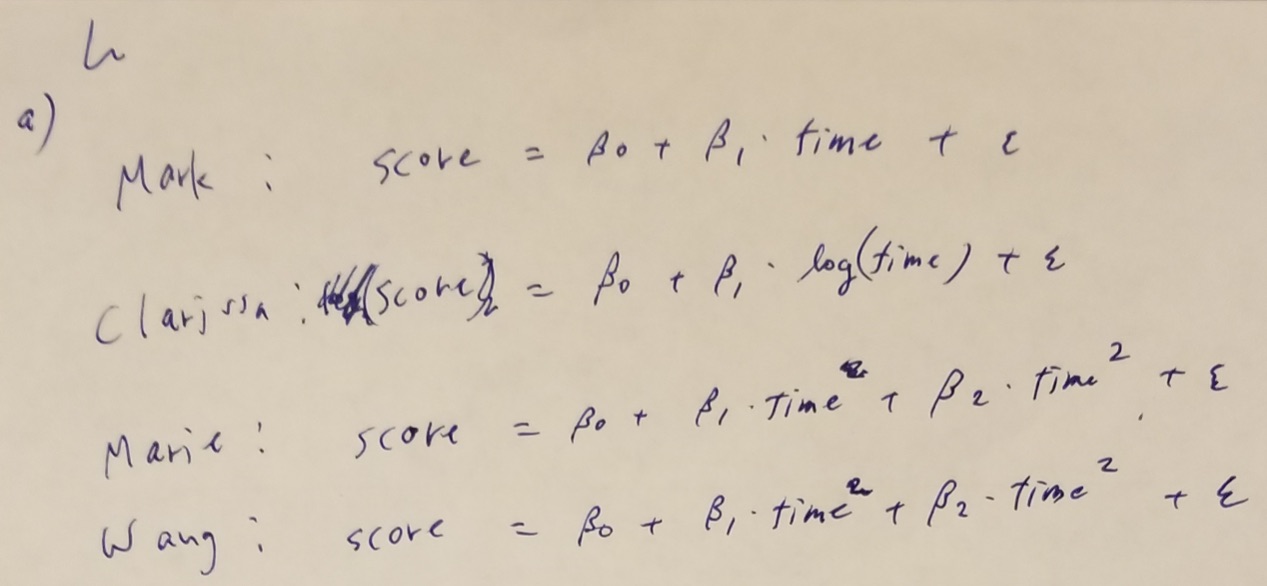 a)
Mark : score = β0 + β1 · time + ε
Clarissa : (score) = β0 + β1 · log(time) + ε
Marie : score = β0 + β1 · Time + β2 · Time² + ε
Wang : score = β0 + β1 · time + β2 · Time² + ε